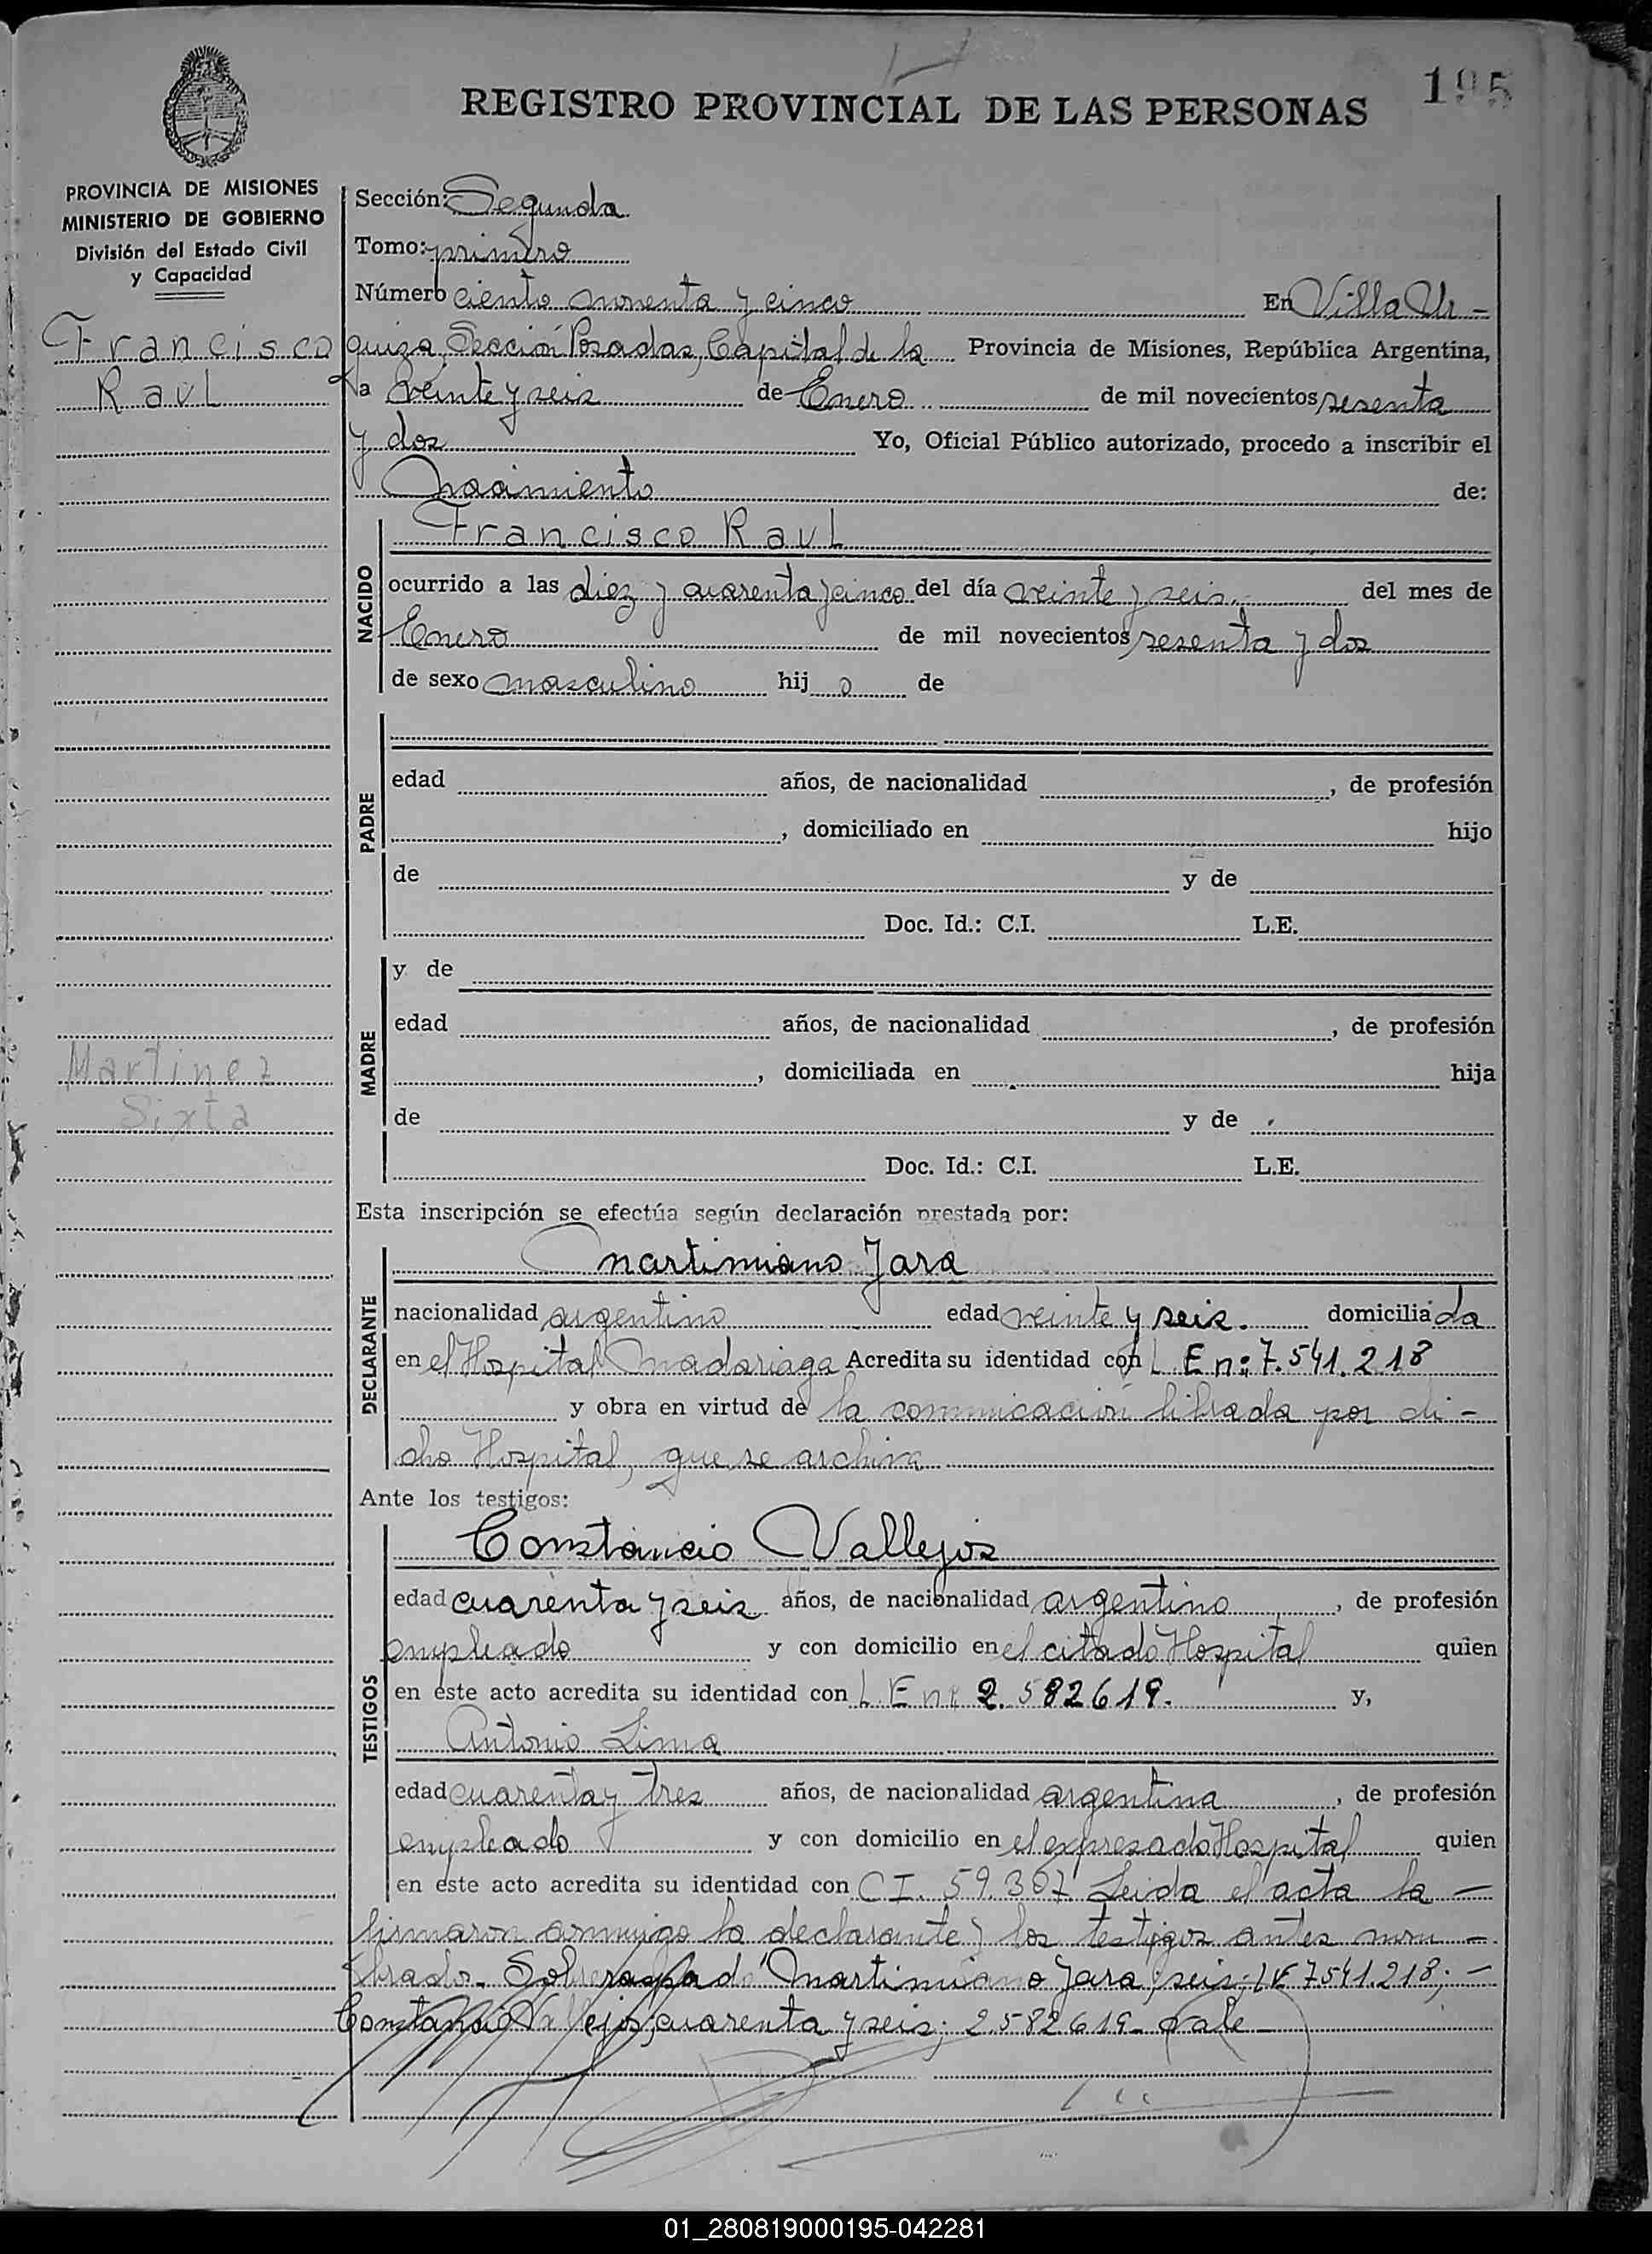 REGISTRO PROVINCIAL DE LAS PERSONAS
195
PROVINCIA DE MISIONES
MINISTERIO DE GOBIERNO
División del Estado Civil
y Capacidad
Francisco
Raul
Martinez
Sixta
Sección: Segunda
Tomo: primero
Número ciento noventa y cinco En Villa Ur-
quiza, Sección Posadas, Capital de la Provincia de Misiones, República Argentina,
a veinte y seis de Enero de mil novecientos sesenta
y dos Yo, Oficial Público autorizado, procedo a inscribir el
Nacimiento de:
NACIDO
Francisco Raul
ocurrido a las diez y cuarenta y cinco del día veinte y seis.- del mes de
Enero de mil novecientos sesenta y dos
de sexo masculino hij o de
PADRE
edad años, de nacionalidad , de profesión
, domiciliado en hijo
de y de
Doc. Id.: C.I. L.E.
MADRE
y de
edad años, de nacionalidad , de profesión
, domiciliada en hija
de y de
Doc. Id.: C.I. L.E.
Esta inscripción se efectúa según declaración prestada por:
DECLARANTE
Martimiano Jara
nacionalidad argentino edad veinte y seis. domicilia da
en el Hospital Madariaga Acredita su identidad con L. E nº 7.541.218
y obra en virtud de la comunicación librada por di-
cho Hospital, que se archiva
Ante los testigos:
TESTIGOS
Constancio Vallejos
edad cuarenta y seis años, de nacionalidad argentino , de profesión
empleado y con domicilio en el citado Hospital quien
en este acto acredita su identidad con L. E nº 2.582619. y,
Antonio Lima
edad cuarenta y tres años, de nacionalidad argentina , de profesión
empleado y con domicilio en el expresado Hospital quien
en este acto acredita su identidad con C I. 59.307 Leida el acta la -
firmaron conmigo la declarante y los testigos antes nom -
brado. Sobreraspado "Martimiano Jara; seis; LE 7541.218; -
Constancio Vallejos; cuarenta y seis; 2.582.619- vale -
01_280819000195-042281